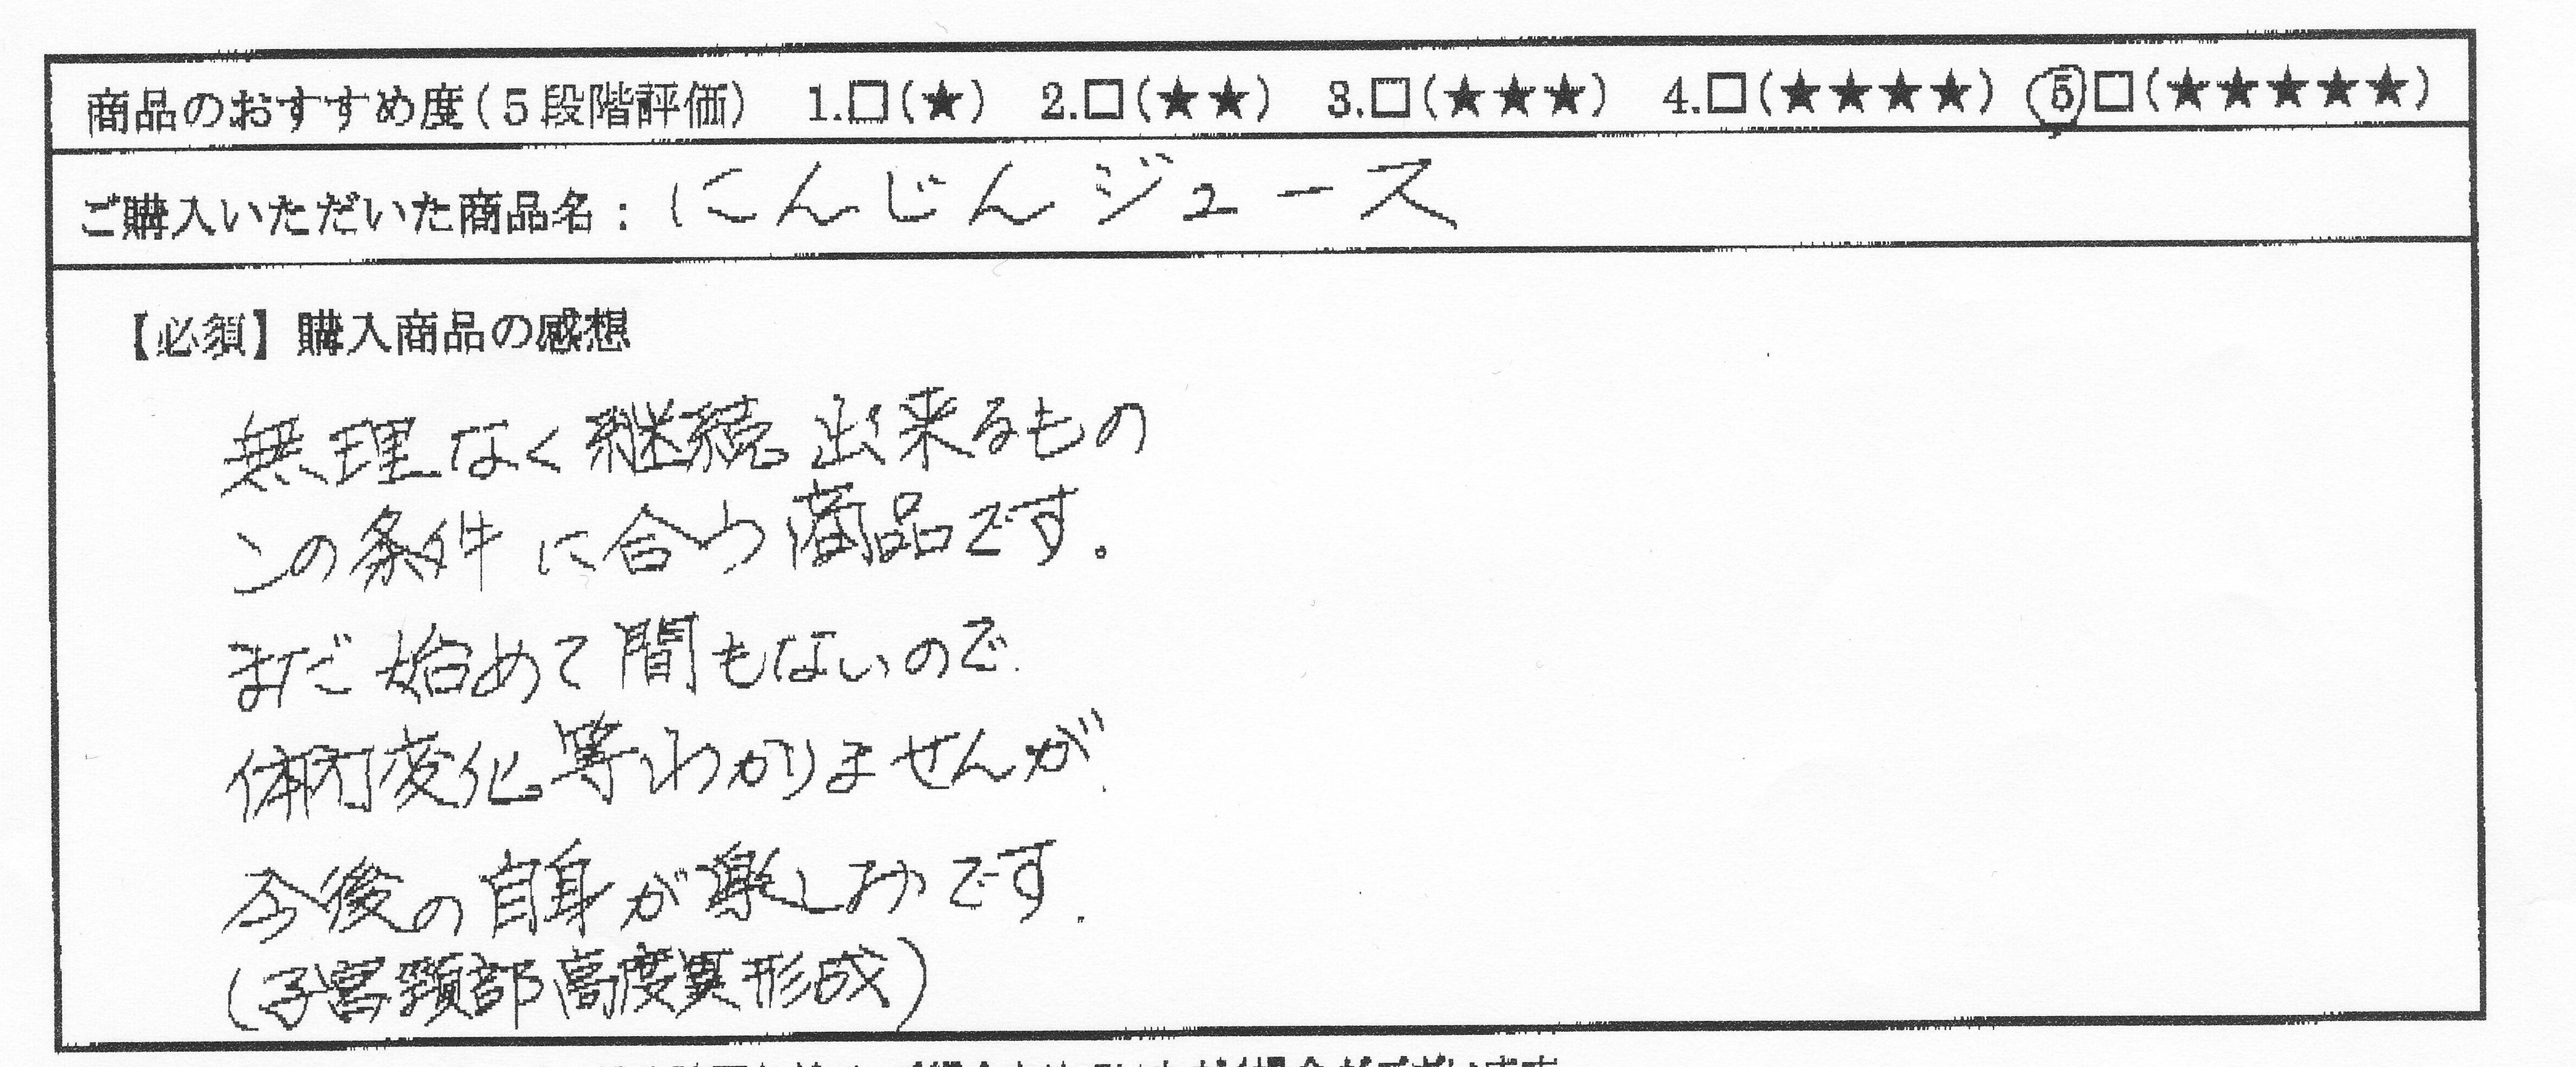 商品のおすすめ度(5段階評価) 1.□(★) 2.□(★★) 3.□(★★★) 4.□(★★★★) 5□(★★★★★)
ご購入いただいた商品名: にんじんジュース
【必須】購入商品の感想
無理なく継続出来るもの
この条件に合う商品です。
まだ始めて間もないので
体内変化等わかりませんが
今後の自身が楽しみです.
(子宮頸部高度異形成)